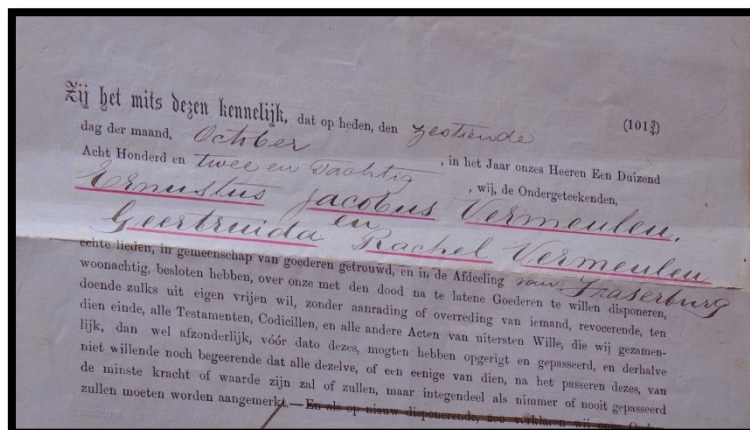 Zij het mits dezen kennelijk, dat op heden, den zestiende (101¾)
dag der maand, October , in het Jaar onzes Heeren Een Duizend
Acht Honderd en twee en Dachtig , wij, de Ondergeteekenden,
Ernustus Jacobus Vermeulen.
en
Geertruida Rachel Vermeulen
echte lieden, in gemeenschap van goederen getrouwd, en in de Afdeeling van Fraserburg
woonachtig, besloten hebben, over onze met den dood na te latene Goederen te willen disponeren,
doende zulks uit eigen vrijen wil, zonder aanrading of overreding van iemand, revocerende, ten
dien einde, alle Testamenten, Codicillen, en alle andere Acten van uitersten Wille, die wij gezamen-
lijk, dan wel afzonderlijk, vóór dato dezes, mogten hebben opgerigt en gepasseerd, en derhalve
niet willende noch begeerende dat alle dezelve, of een eenige van dien, na het passeren dezes, van
de minste kracht of waarde zijn zal of zullen, maar integendeel als nimmer of nooit gepasseerd
zullen moeten worden aangemerkt.—En als op nieuw disponerende, zoo verklaren wij